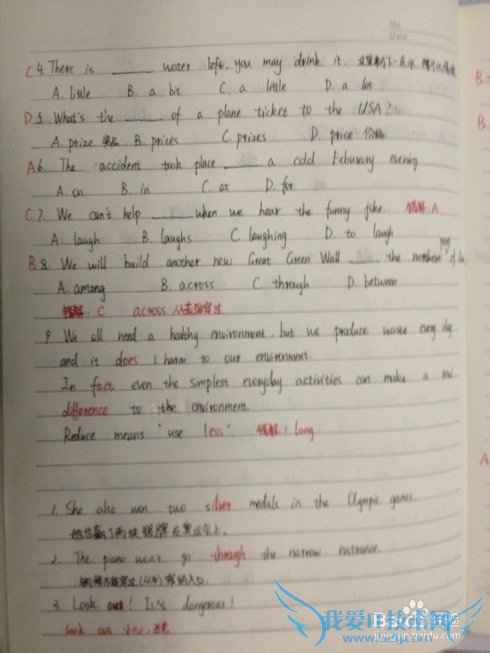 No.
Date
C 4. There is ____ water left, you may drink it.
A. little B. a bit C. a little D. a lot
D 5. What's the ____ of a plane ticket to the USA?
A. prize 奖品 B. prizes C. prizes D. price 价格
A 6. The accident took place ____ a cold Feburary evening
A. on B. in C. at D. for
C 7. We can't help ____ when we hear the funny joke. 错解 A
A. laugh B. laughs C. laughing D. to laugh
B 8. We will build another new Great Green Wall ____ the northern part of
A. among B. across C. through D. between
错解: C across 从表面穿过
9. We all need a healthy environment, but we produce waste every day
and it does harm to our environment.
In fact, even the simplest everyday activities can make a real
difference to the environment.
Reduce means "use less". 错解: long
1. She also won two silver medals in the Olympic games.
她也赢了两块银牌在奥运会上.
2. The piano won't go through the narrow entrance.
3. Look out! It's dangerous!
look out 小心
我爱IT技术网
www.52itp.com
Baidu 经验
jingyan.baidu.com